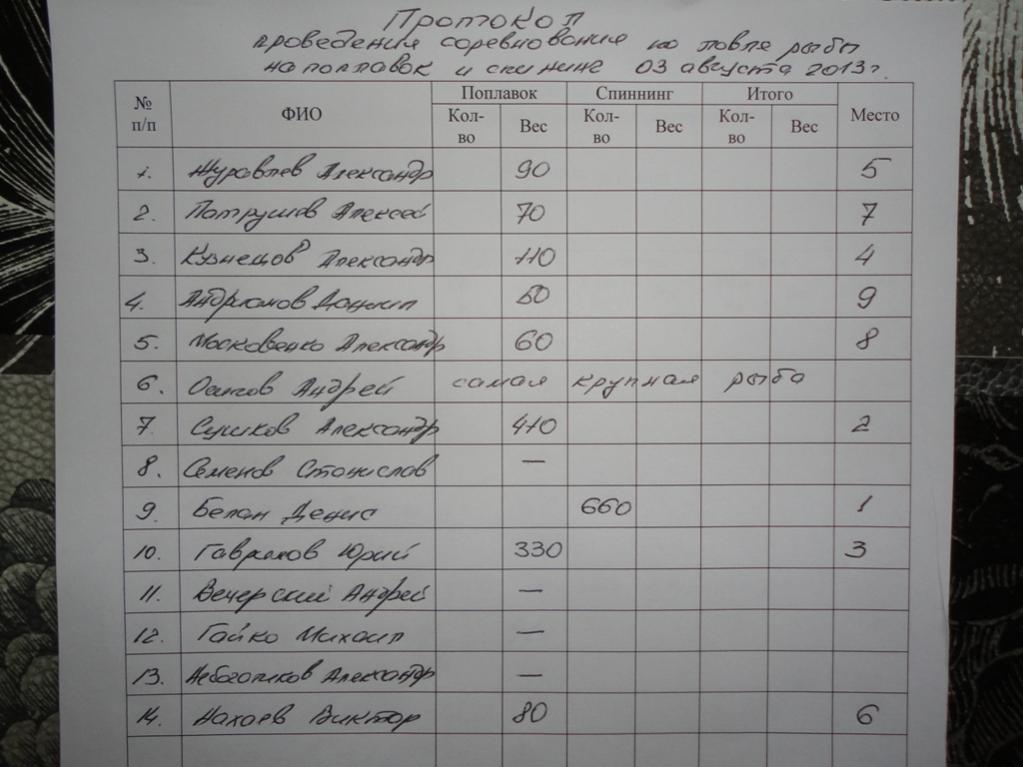 Протокол
проведения соревнования по ловле рыбы
на поплавок и спининг 03 августа 2013г.
№ п/п ФИО Поплавок Спиннинг Итого Место
Кол-во Вес Кол-во Вес Кол-во Вес
1. Журавлев Александр 90 5
2. Патрушов Алексей 70 7
3. Кузнецов Александр 110 4
4. Даниил 50 9
5. Московенко Александр 60 8
6. Осипов Андрей самая крупная рыба
7. Сушков Александр 410 2
8. Семенов Станислав —
9. Белан Денис 660 1
10. Гаврилов Юрий 330 3
11. Вечерский Андрей —
12. Гайко Михаил —
13. Александр —
14. Нахаев Виктор 80 6